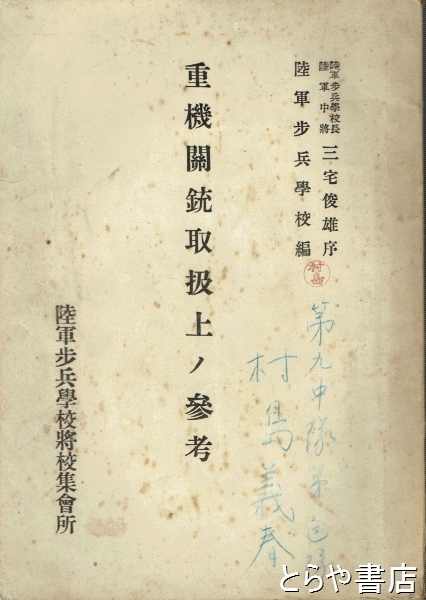 陸軍歩兵學校長
陸軍中將
三宅俊雄序
陸軍歩兵學校編
村島
重機關銃取扱上ノ參考
陸軍歩兵學校將校集會所
第九中隊第
村島義春
とらや書店